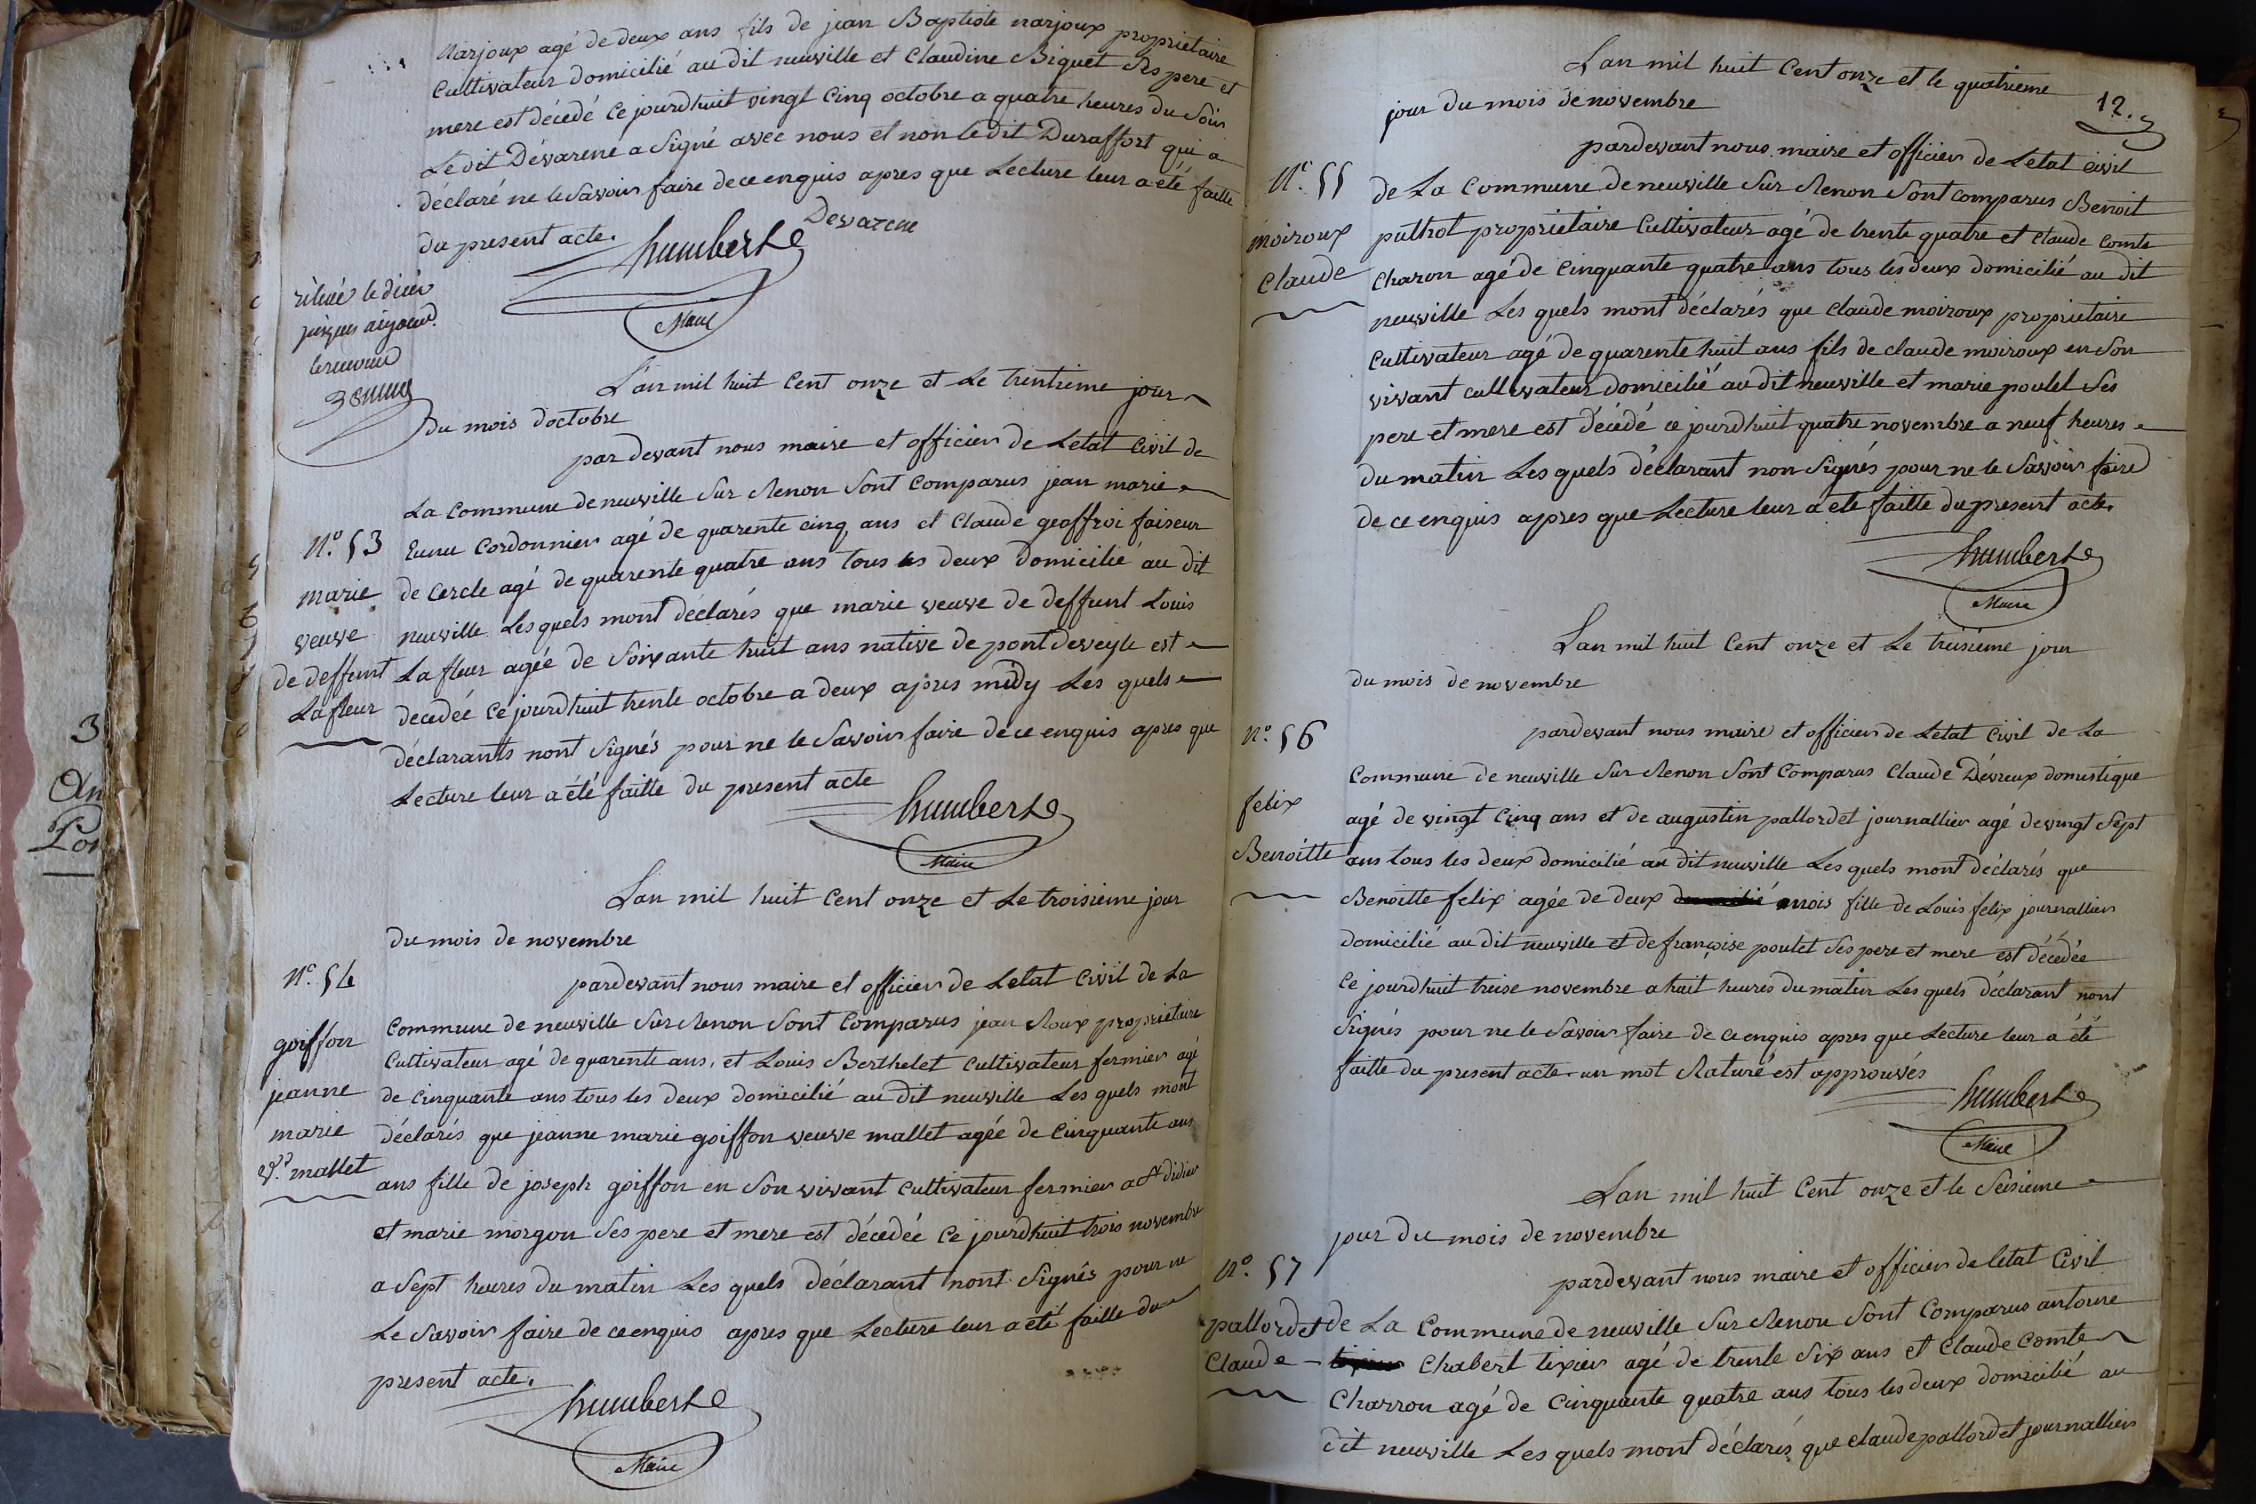 Narjoux agé de deux ans fils de jean Baptiste narjoux proprietaire
Cultivateur domicilié au dit neuville et Claudine Biguet Ses pere et
mere est décédé Ce jourdhuit vingt Cinq octobre a quatre heures du Soir
Le dit Dévarene a Signé avec nous et non le dit Duraffort qui a
déclaré ne le Savoir faire de ce enquis apres que Lecture leur a été faitte
du present acte.
Devarene
humbert
Maire
jusques aujourd.
Lan mil huit Cent onze et Le trentieme jour
Du mois doctobre
par devant nous maire et officier de Letat Civil de
La Commune de neuville Sur Renon Sont Comparus jean marie
N.o 53
marie
veuve
de deffunt
Lafleur
Cordonnier agé de quarente cinq ans et Claude geoffroi faiseur
de Cercle agé de quarente quatre ans tous les deux domicilié au dit
neuville Lesquels mont déclarés que marie veuve de deffunt Louis
La fleur agée de Soixante huit ans native de pontdeveyle est
decedée Ce jourdhuit trente octobre a deux apres midy Les quels
déclarants nont Signés pour ne le Savoir faire de ce enquis apres que
Lecture leur a été faitte du present acte
humbert
Maire
Lan mil huit Cent onze et Le troisieme jour
du mois de novembre
N.o 54
goiffon
jeanne
marie
v.e mallet
pardevant nous maire et officier de Letat Civil de La
Commune de neuville Sur Renon Sont Comparus jean Roux proprietaire
Cultivateur agé de quarente ans, et Louis Berthelet Cultivateur fermier agé
de cinquante ans tous les deux domicilié au dit neuville Les quels mont
déclarés que jeanne marie goiffon veuve mallet agée de Cinquante ans
ans fille de joseph goiffon en Son vivant Cultivateur fermier a St didier
et marie morgon Ses pere et mere est décédée Ce jourdhuit trois novembre
a Sept heures du matin Les quels déclarant nont Signés pour ne
Le Savoir faire de ce enquis apres que Lecture leur a été faitte du
present acte.
humbert
Maire
12.
Lan mil huit Cent onze et le quatrieme
jour du mois de novembre
N.o 55
moiroux
Claude
pardevant nous maire et officier de Letat Civil
de La Commune de neuville Sur Renon Sont comparus Benoit
puthot proprietaire Cultivateur agé de trente quatre et Claude Comte
Charon agé de Cinquante quatre ans tous les deux domicilié au dit
neuville Les quels mont déclarés que Claude moiroux proprietaire
Cultivateur agé de quarente huit ans fils de claude moiroux en Son
vivant cultivateur domicilié au dit neuville et marie poulet Ses
pere et mere est décédé ce jourdhuit quatre novembre a neuf heures
du matin Les quels déclarant non Signés pour ne le Savoir faire
de ce enquis apres que Lecture leur a eté faitte du present acte.
humbert
Maire
Lan mil huit Cent onze et Le treisieme jour
du mois de novembre
N.o 56
felix
Benoitte
pardevant nous maire et officier de Letat Civil de La
Commune de neuville Sur Renon Sont Comparus Claude Dévreux domestique
agé de vingt Cinq ans et de augustin pallordet journallier agé de vingt Sept
ans tous les deux domicilié au dit neuville Les quels mont déclarés que
Benoitte felix agée de deux mois fille de Louis felix journallier
domicilié au dit neuville et de françoise poulet Ses pere et mere est décédée
Ce jourdhuit treise novembre a huit heures du matin Les quels déclarant nont
Signés pour ne le Savoir faire de ce enquis apres que Lecture leur a été
faitte du present acte. un mot Raturé est approuvés
humbert
Maire
Lan mil huit Cent onze et le Seisieme
jour du mois de novembre
N.o 57
pallordet
Claude
pardevant nous maire et officier de letat Civil
de La Commune de neuville Sur Renon Sont Comparus antoine
Chabert tixier agé de trente Six ans et Claude Comte
Charron agé de Cinquante quatre ans tous les deux domicilié au
dit neuville Les quels mont déclarés que claude pallordet journallier